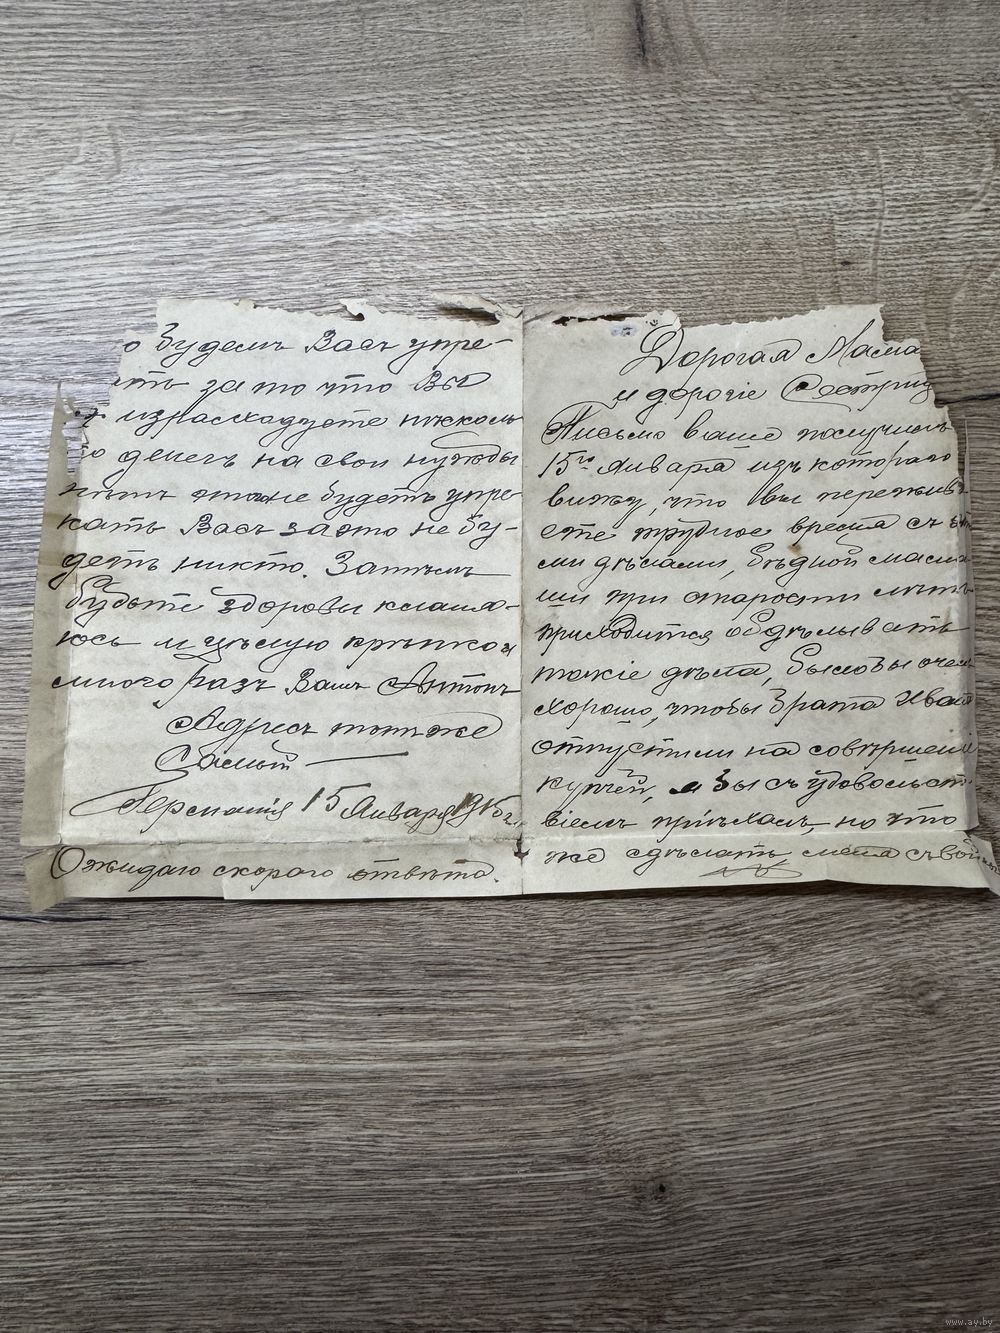 о будемъ Васъ упре-
ать за то что Вы
израсходуете нѣсколь
ко денегъ на свои нужды
будетъ упре-
кать Васъ за это не бу-
детъ никто. Затѣмъ
будьте здоровы кланя-
юсь и цѣлую крѣпко и
много разъ Вашъ Антонъ
Адресъ тотъ же
Самый
Германія 15 Января 1915 г.
Ожидаю скораго отвѣта.
Дорогая Мама
и дорогіе Сестриц
Письмо ваше получилъ
15го Января изъ котораго
вижу, что вы пережива
ете трудное время съ
ми дѣлами, бѣдной мама
ши при старости лѣтъ
приходится обдѣлывать
такіе дѣла, было бы очень
хорошо, чтобы брата Ивана
отпустили на совершеніе
купчей, я бы съ удовольст
віемъ пріѣхалъ, но что
же сдѣлать, меня съ вой